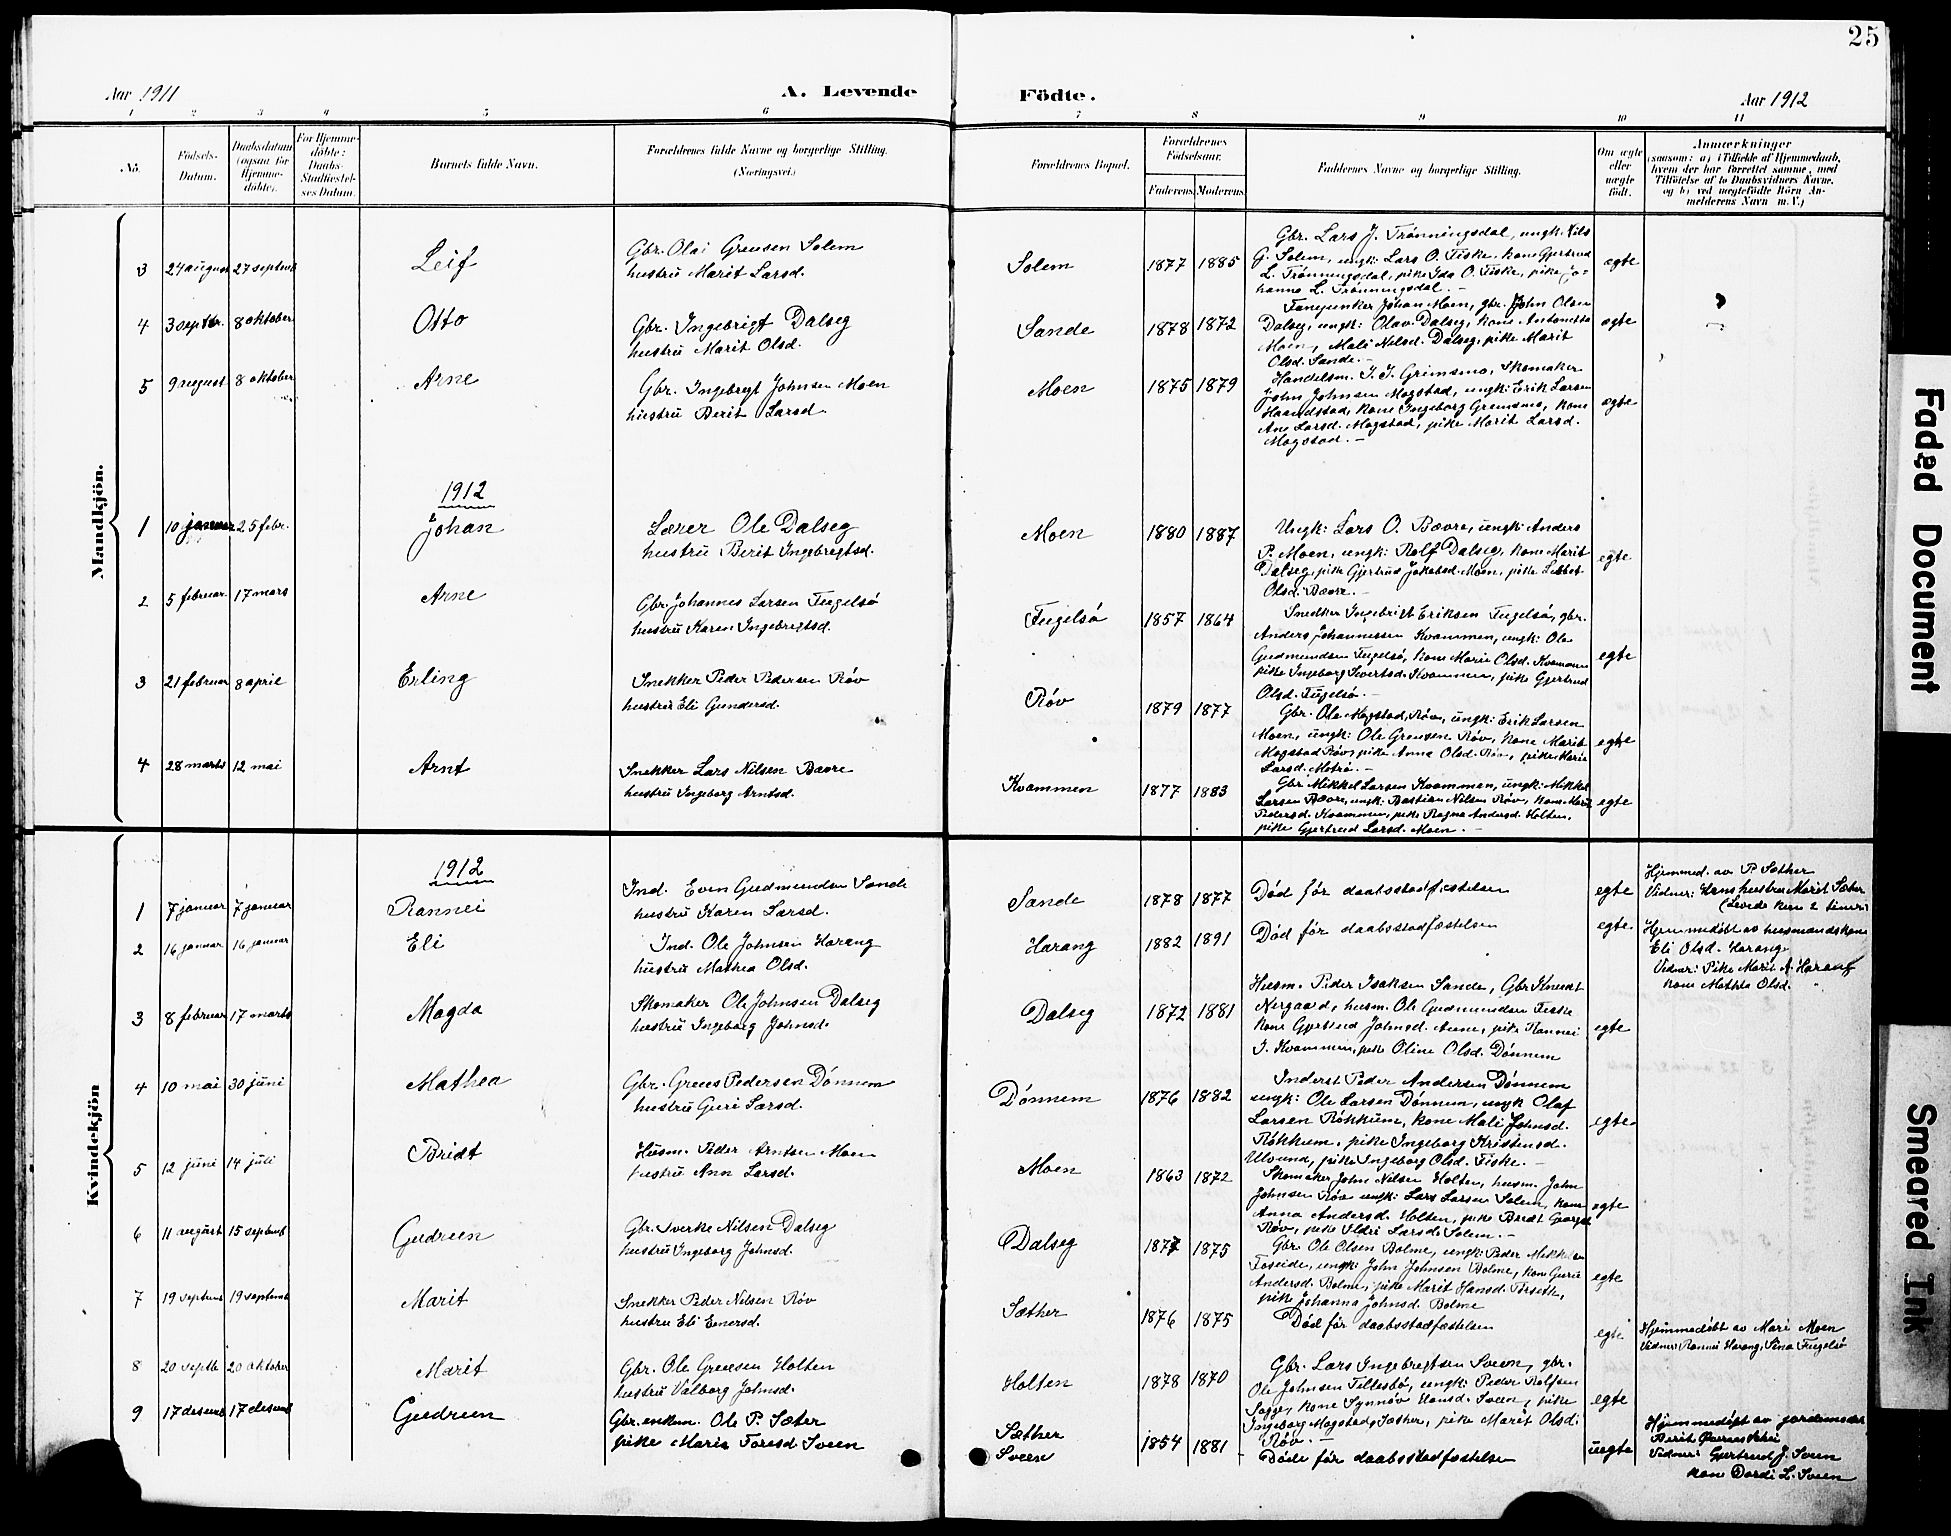 25
Aar 1911
A. Levende
Födte.
Aar 1912
1 2 3 4 5 6 7 8 9 10 11
No.
Födsels-
Datum.
Daabsdatum
(ogsaa for
Hjemme-
döbte).
For Hjemme-
döbte:
Daabs-
Stadfæstel-
ses Datum.
Barnets fulde Navn.
Forældrenes fulde Navne og borgerlige Stilling.
(Næringsvei.)
Forældrenes Bopæl.
Forældrenes
Födselsaar.
Faderens. Moderens.
Faddernes Navne og borgerlige Stilling.
Om ægte
eller
uægte
födt.
Anmærkninger
(saasom: a) i Tilfælde af Hjemmedaab,
hvem der har forrettet samme, med
Tilföielse af to Daabsvidners Navne,
og b) ved uægtefödte Börn An-
melderens Navn m. V.)
Mandkjön.
3 24 august 27 septemb Leif
Gbr. Olai Greusen Solem
hustru Marit Larsd.
Solem 1877 1885
Gbr. Lars J. Trønningsdal, ungk. Nils
G. Solem, ungk: Lars O. Fiske, kone Gjertrud
L. Trønningsdal, pike Ida O. Fiske, pike Jo-
hanna L. Trønningsdal. —
ægte
4 3 septbr. 8 oktober Otto
Gbr. Ingebrigt Dalseg
hustru Marit Olsd.
Sande 1878 1872
Fanejunker Johan Moen, gbr. John Olsen
Dalseg, ungk: Olav Dalseg, kone Antonetta
Moen, Mali Nilsd. Dalseg, pike Marit
Olsd. Sande. —
ægte
5 9 august 8 oktober Arne
Gbr. Ingebrigt Johnsen Moen
hustru Berit Larsd.
Moen 1875 1879
Handelsm. I. I. Grimsmo, Skomaker
John Johnsen Mogstad, ungk: Erik Larsen
Haandstad, kone Ingeborg Grimsmo, kone
Ane Larsd. Mogstad, pike Marit Larsd.
Mogstad. —
ægte
1912
1 10 januar 25 febr. Johan
Lærer Ole Dalseg
hustru Berit Ingebregtsd.
Moen 1880 1887
Ungk: Lars O. Bævre, ungk: Anders
P. Moen, ungk: Rolf Dalseg, kone Marit
Dalseg, pike Gjertrud Jakobsd. Moen, pike Lisbet
Olsd. Bævre. —
egte
2 5 februar 17 mars Arne
Gbr. Johannes Larsen Fugelsø
hustru Karen Ingebrigtsd.
Fugelsø 1857 1864
Snedker Ingebrigt Eriksen Fugelsø, gbr.
Anders Johannessen Kvammen, ungk: Ole
Gudmundsen Fugelsø, kone Marie Olsd. Kvammen
pike Ingeborg Sivertsd. Kvammen, pike Gjertrud
Olsd. Fugelsø. —
egte
3 21 februar 8 april Erling
Snekker Peder Pedersen Røv
hustru Eli Gundersd.
Røv 1879 1877
Gbr. Ole Mogstad, Røv, ungk: Erik Larsen
Moen, ungk: Ole Greusen Røv, kone Marit
Mogstad Røv, pike Anna Olsd. Røv, pike Marie
Larsd. Motrø. —
egte
4 28 marts 12 mai Arnt
Snekker Lars Nilsen Bævre
hustru Ingeborg Arntsd.
Kvammen 1877 1883
Gbr. Mikkel Larsen Kvammen, ungk: Mikkel
Larsen Bævre, ungk: Bastian Nilsen Røv, kone Marit
Pedersd. Kvammen, pike Ragna Andersd. Holten,
pike Gjertrud Larsd. Moen. —
egte
Kvindekjön
1912
1 7 januar 7 januar Rannei
Ind. Even Gudmundsen Sande
hustru Karen Larsd.
Sande 1878 1877
Død før daabsstadfæstelsen
egte
Hjemmed. av P. Sæther
Vidner: Hans hustru Marit Sæter
(Levede kun 2 timer)
2 16 januar 16 januar Eli
Ind. Ole Johnsen Harang
hustru Mathea Olsd.
Harang 1882 1891
Død før daabsstadfæstelsen
egte.
Hjemmedøbt av husmandskone
Eli Olsd. Harang
Vidner: Pike Marit A. Harang
kone Mathea Olsd.
3 8 februar 17 marts Magda
Skomaker Ole Johnsen Dalseg
hustru Ingeborg Johnsd.
Dalseg 1872 1881
Husm. Peder Isaksen Sande, Gbr Knudt
Nergaard, husm. Ole Gudmundsen Fiske
kone Gjertrud Johnsd. Aune, pike Rannei
I. Kvammen, pike Oline Olsd. Dønnem
egte
4 10 mai 30 juni Mathea
Gbr. Greus Pedersen Dønnem
hustru Guri Larsd.
Dønnem 1876 1882
Inderst Peder Andersen Dønnem
ungk: Ole Larsen Dønnem, ungk Olaf
Larsen Røkkum, kone Mali Johnsd.
Røkkum, pike Ingeborg Kristensd.
Ulvund, pike Ingeborg Olsd. Fiske. —
egte
5 12 juni 14 juli Bridt
Husm. Peder Arntsen Moen
hustru Ann Larsd.
Moen 1863 1872
Skomaker John Nilsen Holten, husm. John
Johnsen Røv ungk: Lars Larsen Solem, kone
Anna Andersd. Holten, pike Beret
Røv, pike Ildri Larsd. Solem. —
egte
6 11 august 15 septemb Gudrun
Gbr. Sverke Nilsen Dalseg
hustru Ingeborg Johnsd.
Dalseg 1877 1875
Gbr. Ole Olsen Bolme, ungk: Peder Mikkelsen
Foseide, ungk: John Johnsen Bolme, kone Guru
Andersd. Bolme, pike Marit Hansd. Forseth,
pike Johanna Johnsd. Bolme
egte
7 19 septemb 19 septemb Marit
Snekker Peder Nilsen Røv
hustru Eli Einersd.
Sæther 1876 1875
Død før daabsstadfæstelsen
egte
Hjemmedøbt av Mari Moen
Vidner: Rannei Harang, Sina Fugelsø
8 20 septb 20 oktober Marit
Gbr. Ole Greusen Holten
hustru Valborg Johnsd.
Holten 1878 1870
Gbr. Lars Ingebregtsen Sveen, gbr.
Ole Johnsen Tellesbø, ungk: Peder Rolfsen
Sogge, kone Synnøv Hansd. Sveen, pike
Ingeborg Mogstad, Sæther, pike Marit Olsd.
Røv. —
egte
9 17 desemb 17 desemb Gudrun
Gbr. enkem. Ole P. Sæter
pike Marie Toresd Sveen
Sæther
Sveen
1854 1881
Døde før daabsstadfæstelsen
uegte
Hjemmedøpt av jordemoder
Berit
Vidner: Gjertrud J. Sveen
kone Dordi L. Sveen
Faded Document
Smeared Ink